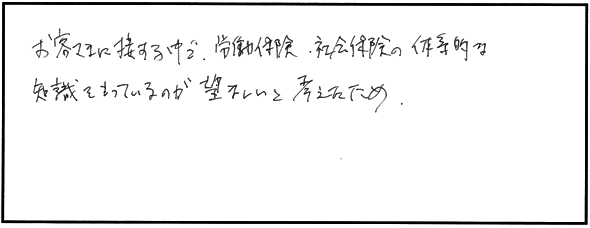 お客さまに接する中で、労働保険、社会保険の体系的な
知識をもっているのが望ましいと考えたため。